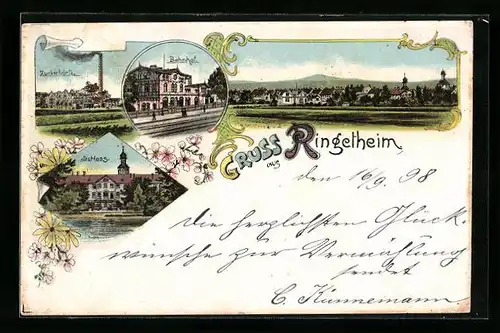 Zuckerfabrik
Bahnhof
Schloss
Gruss aus Ringelheim,
den 16/9. 98
Die herzlichsten Glück-
wünsche zur Vermählung
sendet
C. Künnemann.